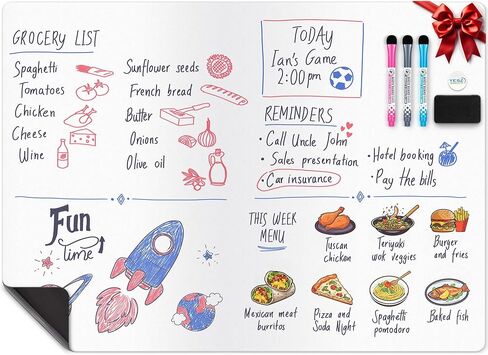 GROCERY LIST
Spaghetti
Tomatoes
Chicken
Cheese
Wine
Sunflower seeds
French bread
Butter
Onions
Olive oil
TODAY
Ian's Game
2:00pm
REMINDERS
• Call Uncle John
• Sales presentation
• Car insurance
• Hotel booking
• Pay the bills
Fun
time
THIS WEEK
MENU
Tuscan
chicken
Teriyaki
wok veggies
Burger
and fries
Mexican meat
burritos
Pizza and
Soda Night
Spaghetti
pomodoro
Baked fish